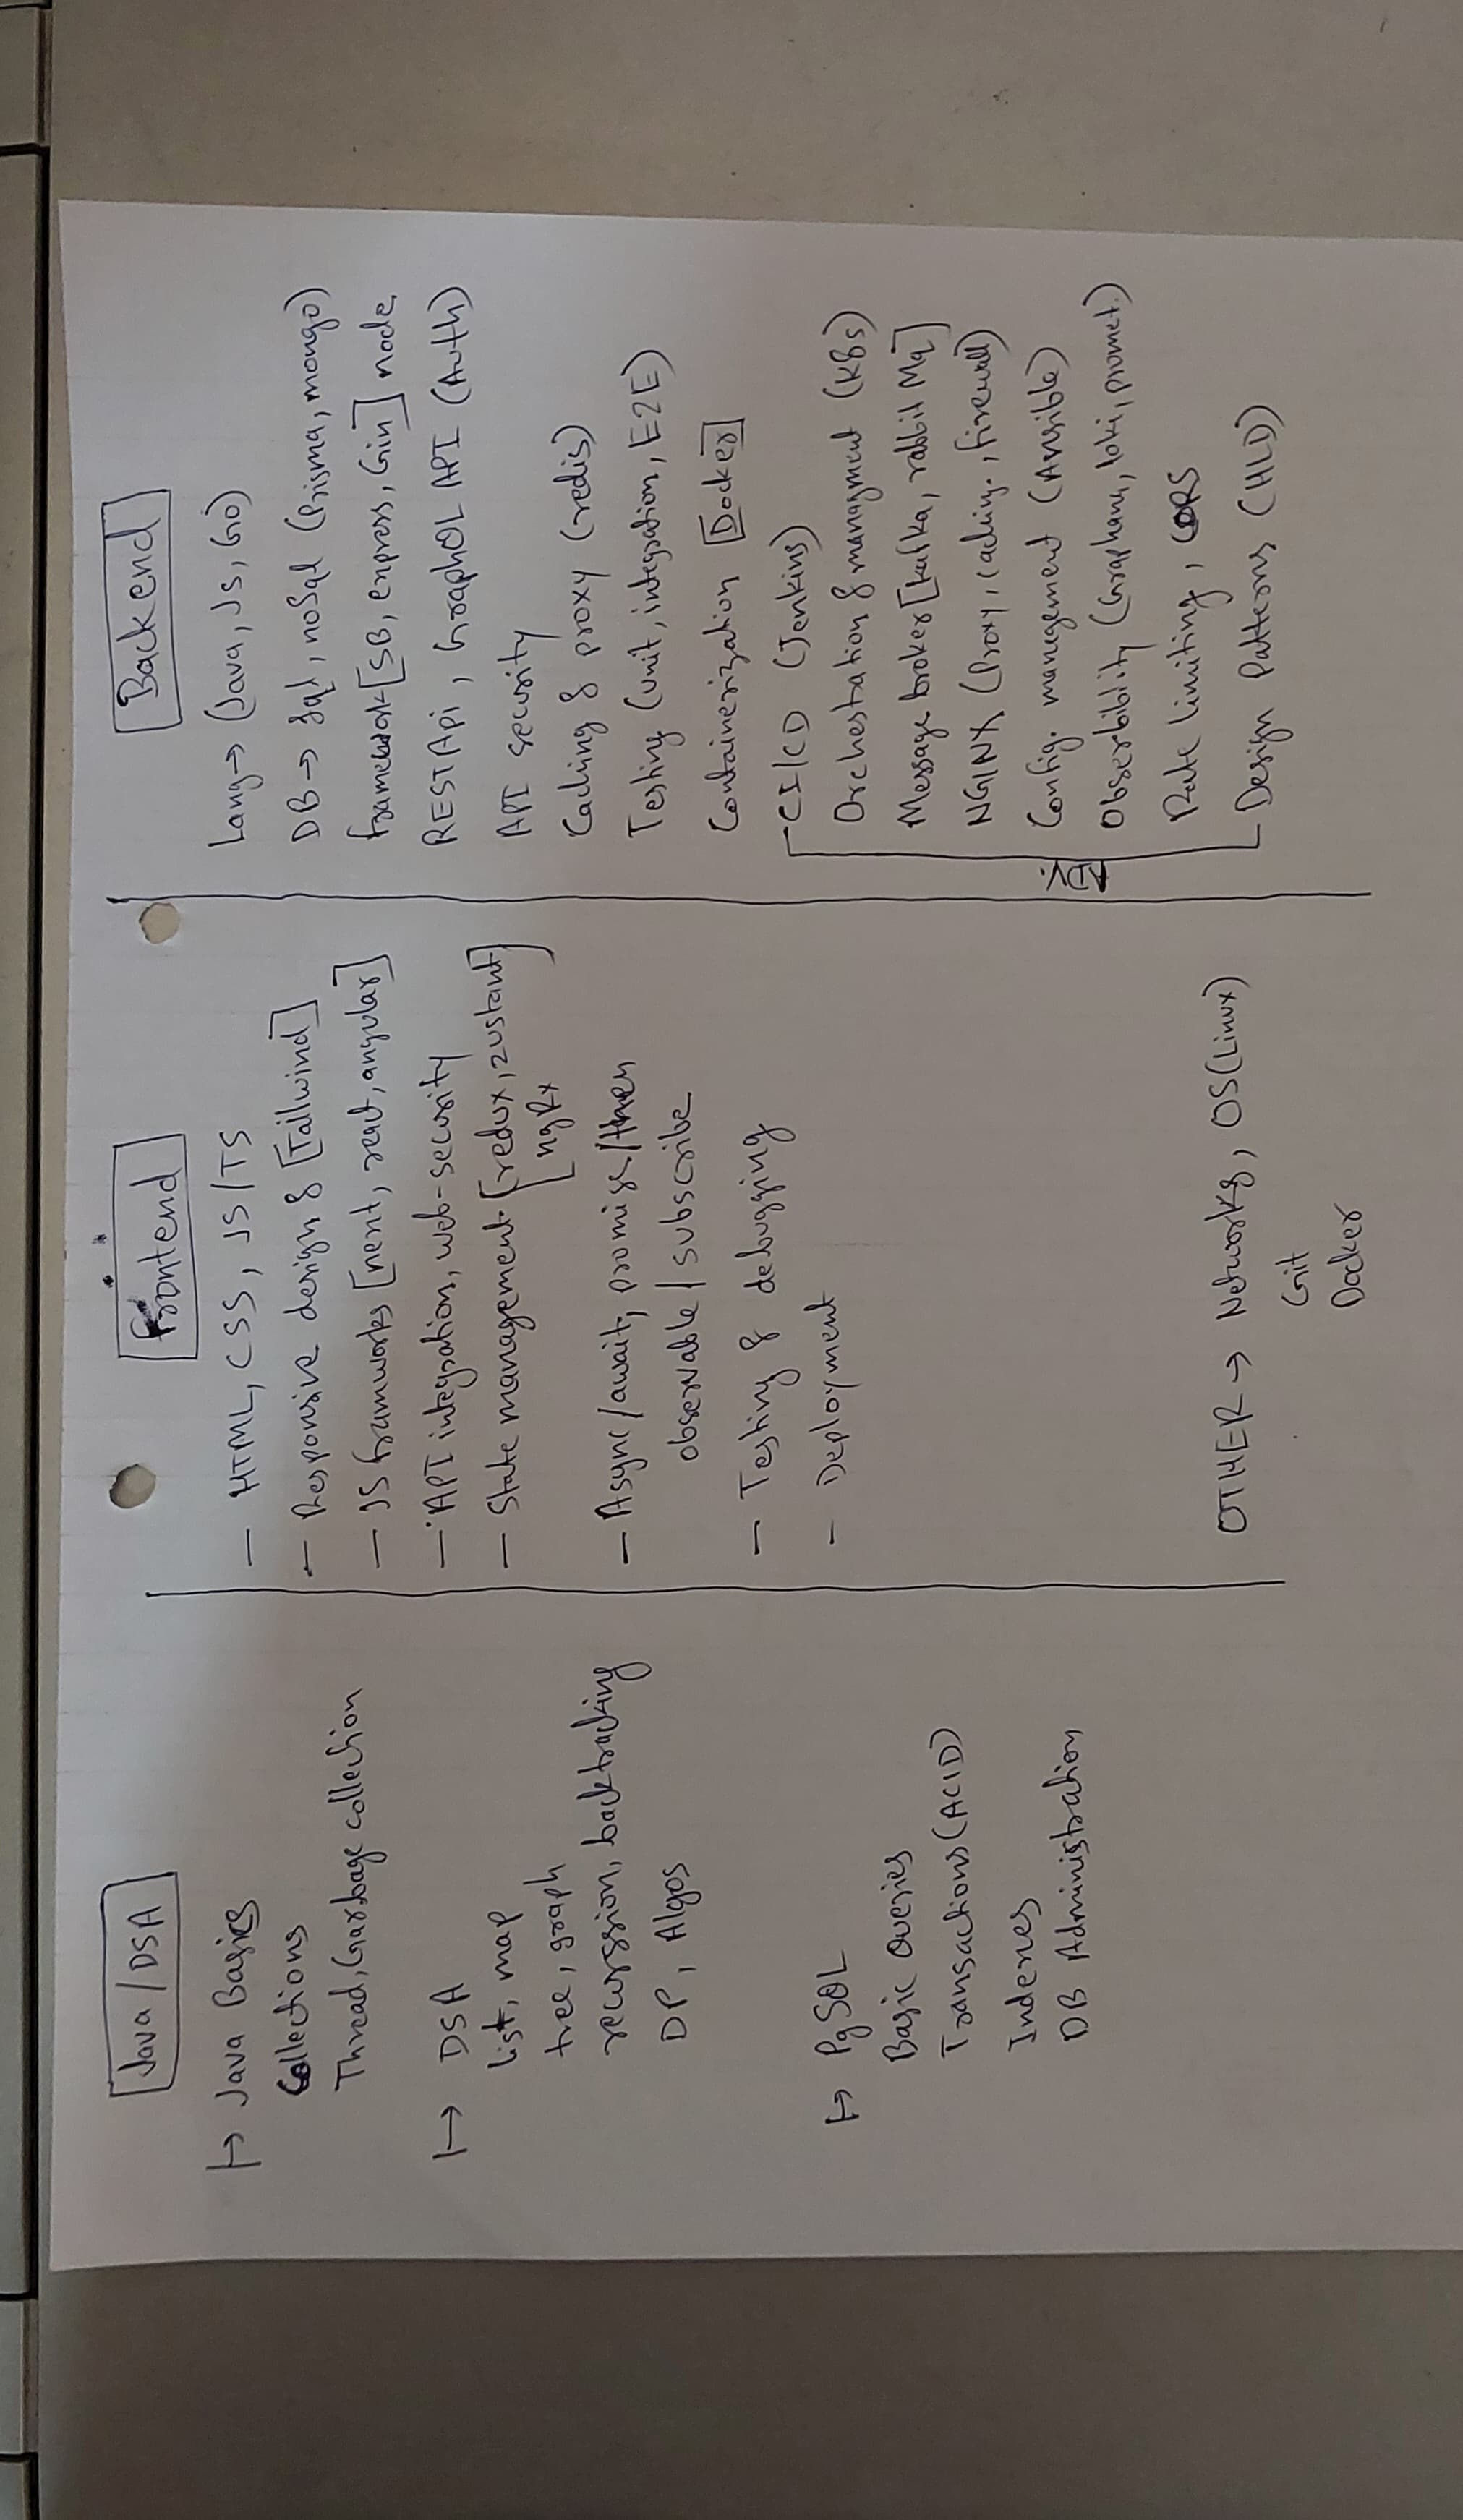 Java/DSA
Java Basics
Collections
Thread, Garbage collection
DSA
list, map
tree, graph
recurssion, backtracking
DP, Algos
PgSQL
Basic Queries
Transactions (ACID)
Indexes
DB Administration
Frontend
- HTML, CSS, JS/TS
- Responsive design & [Tailwind]
- JS framworks [next, react, angular]
- API integration, web-security
- State management [redux, zustant
ngRx]
- Async/await, promise/then
observable/subscribe
- Testing & debugging
- Deployment
OTHER → Networkg, OS(Linux)
Git
Docker
Backend
Lang → (Java, JS, Go)
DB → sql, noSql (Prisma, mongo)
framework [SB, express, Gin] node
REST Api, GraphQL API (Auth)
API security
Caching & proxy (redis)
Testing (unit, integration, E2E)
Containerization [Docker]
CI/CD (Jenkins)
Orchestration & managment (K8s)
Message broker [kafka, rabbit Mq]
NGINX (Proxy, caching, firewall)
Config. management (Ansible)
Obserbibility (Graphana, loki, promet.)
Rate limiting, CORS
Design Patterns (HLD)